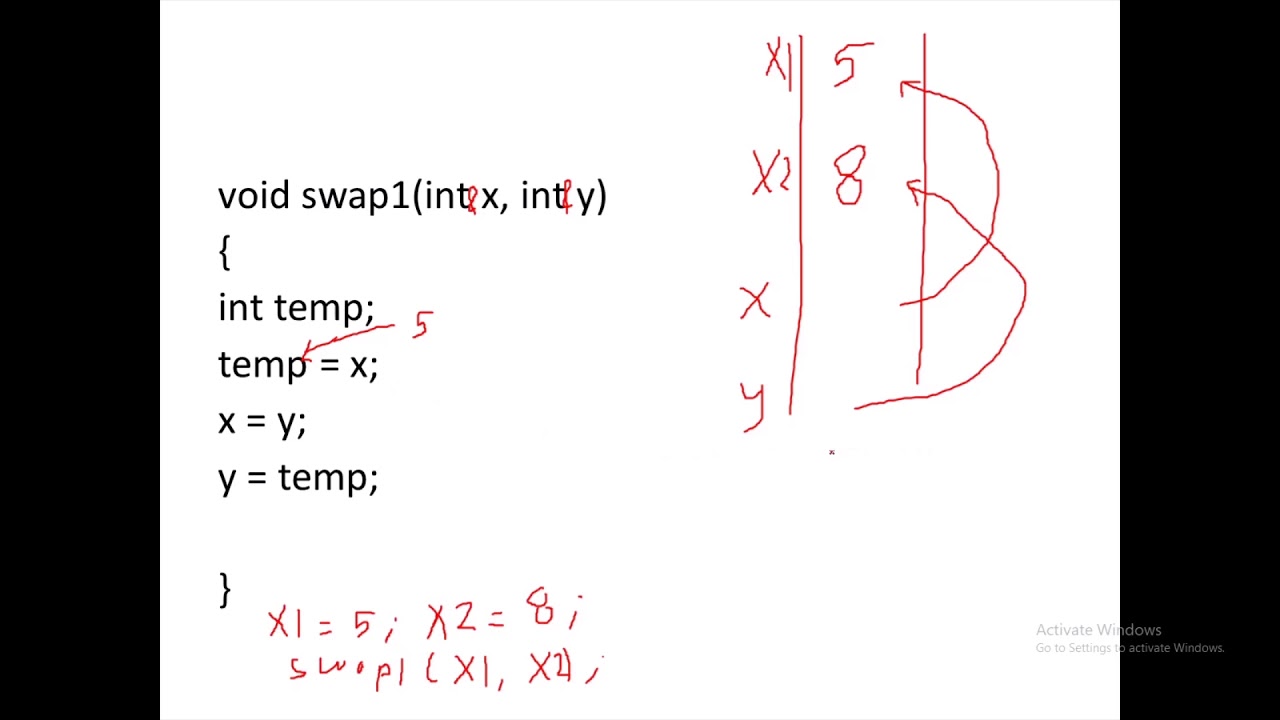 void swap1(int& x, int& y)
{
int temp;
5
temp = x;
x = y;
y = temp;
}
X1 = 5; X2 = 8;
swap1 (X1, X2);
X1 5
X2 8
x
y
Activate Windows
Go to Settings to activate Windows.